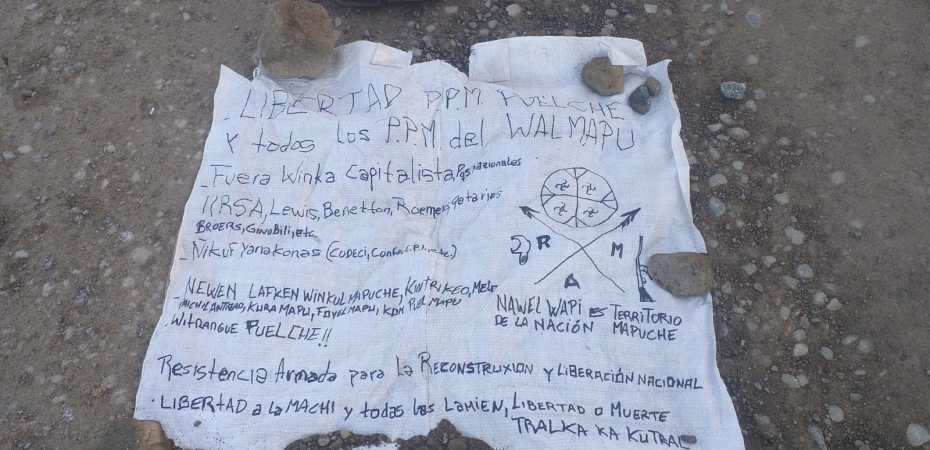 LIBERTAD P.P.M. PUELCHE
Y todos los P.P.M del WALMAPU
- Fuera Winka Capitalista,
IIRSA, Lewis, Benetton, Roemers,
BROERS, Ginobili, etc
- Ñikuf Yanakonas (CODECI,
R M
A
NAWEL WAPI ES TERRITORIO
DE LA NACIÓN MAPUCHE
- NEWEN LAFKEN WINKUL MAPUCHE, KINTRIKEO, MELE
KURA MAPU, FOYEL MAPU, KDM PUEL MAPU
. WITRANGUE PUELCHE!!
Resistencia Armada para la RECONSTRUXION y LIBERACIÓN NACIONAL
. LIBERTAD a la MACHI y todas las LAMIEN, LIBERTAD O MUERTE
TRALKA KA KUTRAL